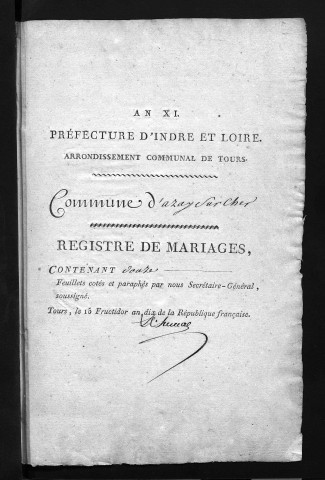 AN XI.
PRÉFECTURE D'INDRE ET LOIRE.
ARRONDISSEMENT COMMUNAL DE TOURS.
Commune d'azay Sur Cher
REGISTRE DE MARIAGES,
CONTENANT
Feuillets cotés et paraphés par nous Secrétaire-Général,
soussigné.
Tours, le 15 Fructidor an dix de la République française.